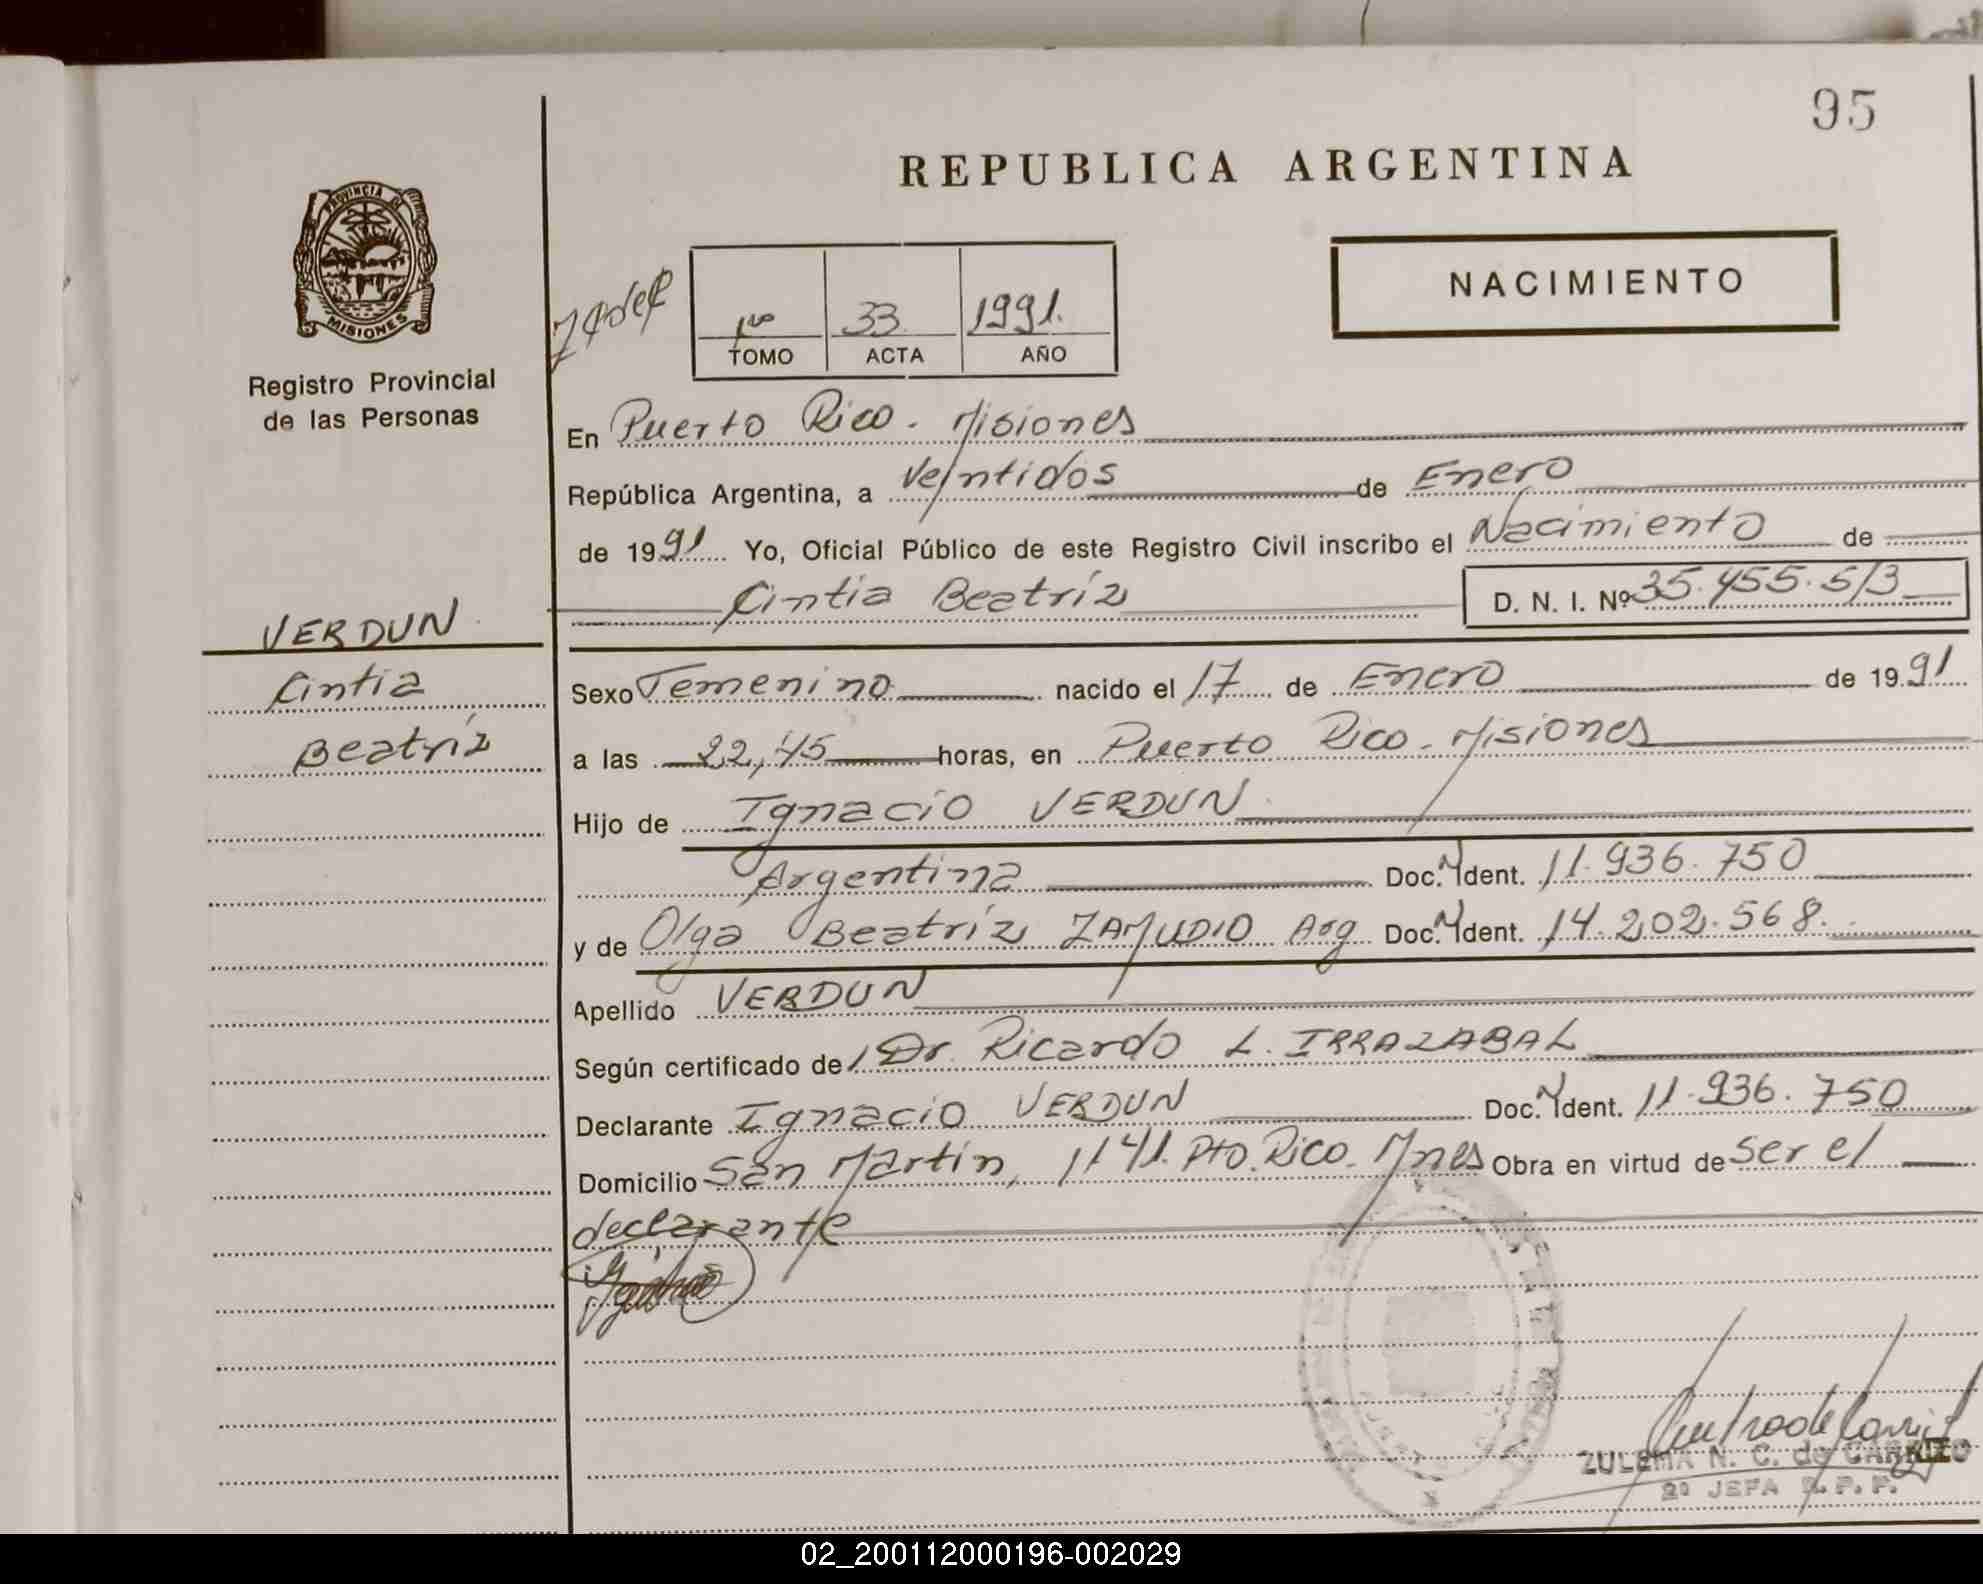 95
REPUBLICA ARGENTINA
PROVINCIA DE
MISIONES
Registro Provincial
de las Personas
1ro 33 1991.
TOMO ACTA AÑO
NACIMIENTO
En Puerto Rico. Misiones
República Argentina, a Veintidos de Enero
de 1991 Yo, Oficial Público de este Registro Civil inscribo el Nacimiento de
Cintia Beatríz D. N. I. Nº 35.455.513
VERDUN
Cintia
Beatríz
Sexo Femenino nacido el 17 de Enero de 1991
a las 22,45 horas, en Puerto Rico. Misiones
Hijo de Ignacio VERDUN
Argentina Doc. Ident. 11.936.750
y de Olga Beatríz ZAMUDIO Arg Doc. Ident. 14.202.568.
Apellido VERDUN
Según certificado de Dr. Ricardo L. IRRAZABAL
Declarante Ignacio VERDUN Doc. Ident. 11.936.750
Domicilio San Martín, 1141. Pto. Rico. Mnes Obra en virtud de ser el
declarante
ZULEMA N. C. de CARRIZO
2º JEFA R. P. P.
02_200112000196-002029